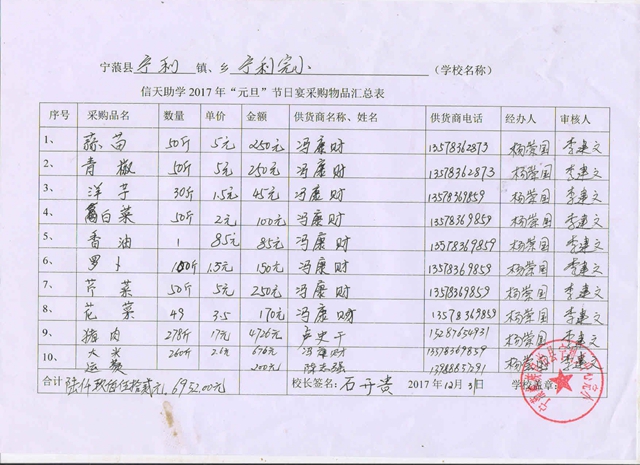 宁蒗县 宁利 镇、乡 宁利完小 (学校名称)
信天助学 2017 年“元旦”节日宴采购物品汇总表
序号 采购品名 数量 单价 金额 供货商名称、姓名 供货商电话 经办人 审核人
1、 蒜苗 50斤 5元 250元 冯康财 13578362873 杨荣国 李建文
2、 青椒 50斤 5元 250元 冯康财 13578362873 杨荣国 李建文
3、 洋芋 30斤 1.5元 45元 冯康财 13578369859 杨荣国 李建文
4、 白菜 50斤 2元 100元 冯康财 13578369859 杨荣国 李建文
5、 香油 1 85元 85元 冯康财 13578369859 杨荣国 李建文
6、 罗卜 100斤 1.5元 150元 冯康财 13578369859 杨荣国 李建文
7、 芹菜 50斤 5元 250元 冯康财 13578369859 杨荣国 李建文
8、 花菜 49 3.5 170元 冯康财 13578369859 杨荣国 李建文
9、 猪肉 278斤 17元 4726元 卢史干 15287654931 杨荣国 李建文
10、 大米 260斤 2.6元 676元 冯康财 13578369859 杨荣国 李建文
运费 200元 杨荣国 李建文
合计 陆仟玖佰伍拾贰元 6952.00元 校长签名: 石子贵 2017 年 12 月 31 日 学校盖章: